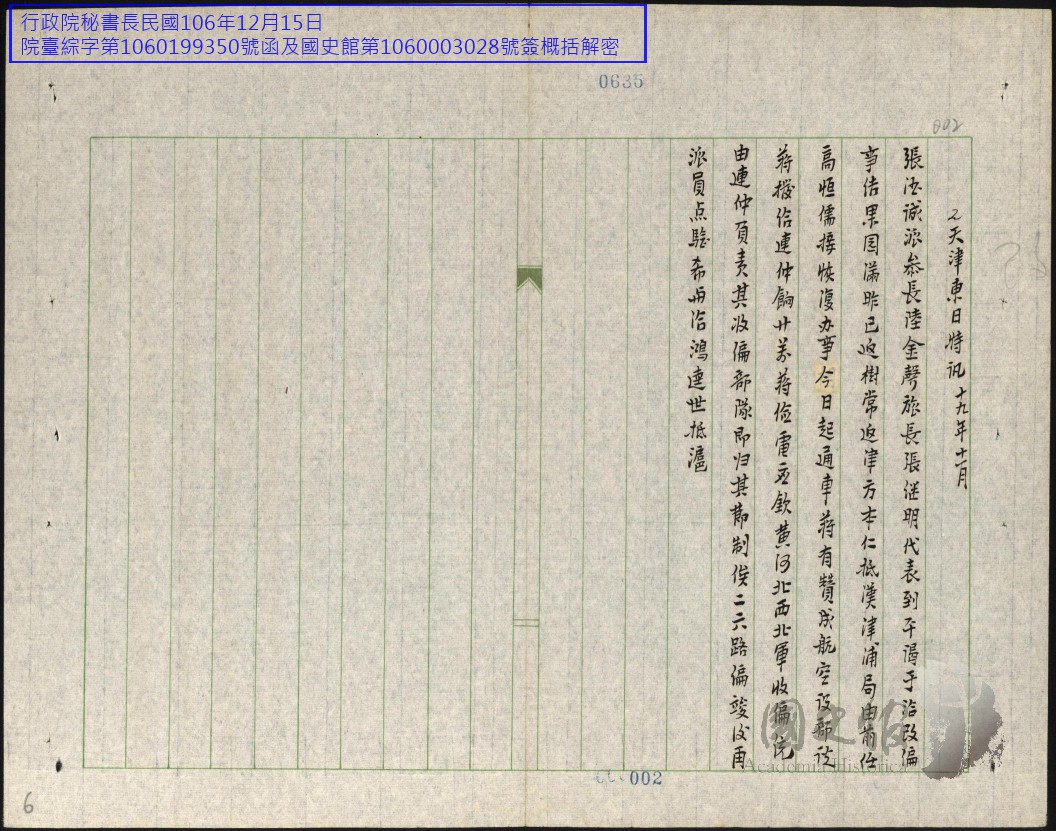 行政院秘書長民國106年12月15日
院臺綜字第1060199350號函及國史館第1060003028號簽概括解密
0635
002
2天津東日特訊 十九年十一月
張濟誠派叅長陸金聲旅長張继明代表到平谒于洽改编
事结果圆满昨已返樹常返津方本仁抵漢津浦局由前任
高恒儒接恢復办事今日起通車蒋有贊成航空设部说
蒋撥给連仲餉廿萬蒋俭電 钦黄河北西北軍收编统
由連仲負责其收编部隊即归其节制俟二六路编竣後再
派員点验希再洽鴻逵世抵滬
國史館
Academia Historica
002
6